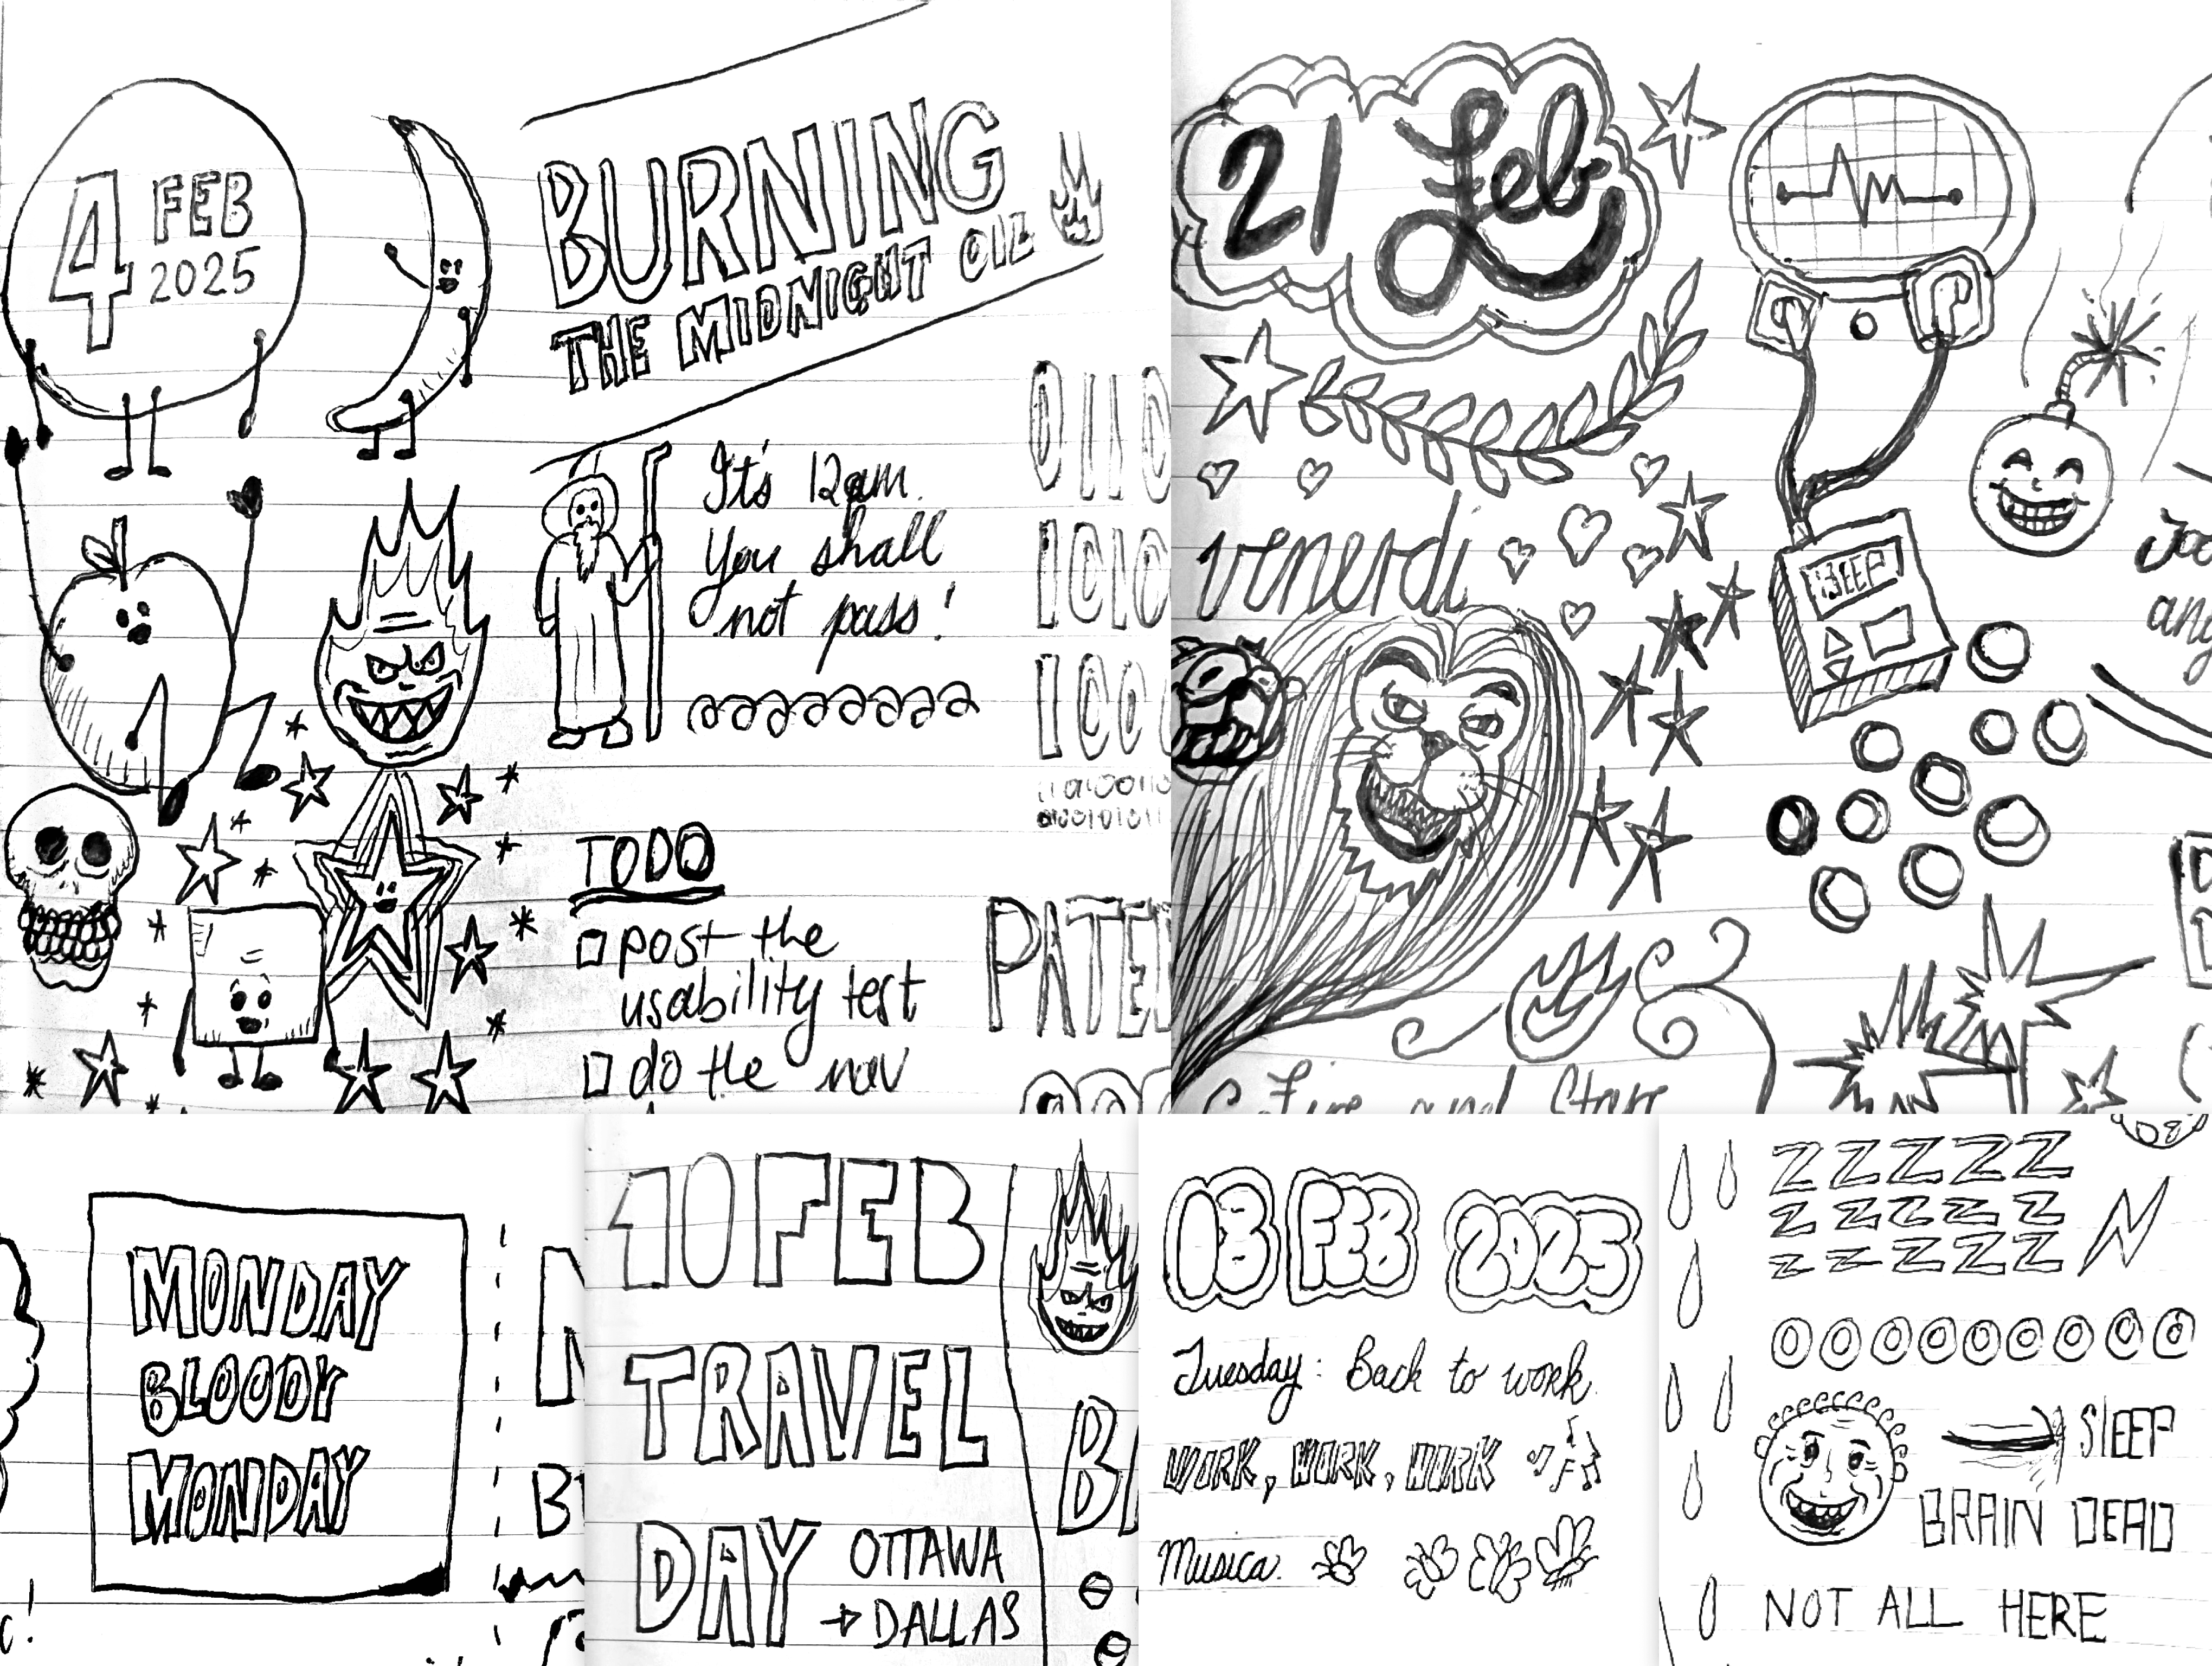 4 FEB
2025
BURNING
THE MIDNIGHT OIL
It's 12am.
You shall
not pass!
0110
1010
100
TODO
post the
usability test
do the nav
PATE
21 Feb
venerdì
BEEP
Fire and Stars
MONDAY
BLOODY
MONDAY
10 FEB
TRAVEL
DAY OTTAWA
→ DALLAS
03 FEB 2025
Tuesday: Back to work.
WORK, WORK, WORK
Musica.
ZZZZZ
ZZZZZ
ZZZZZ
SLEEP
BRAIN DEAD
NOT ALL HERE